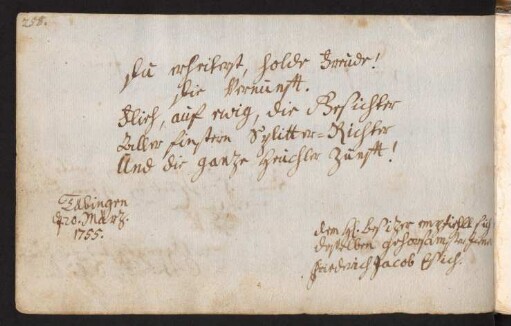 258.
Du erheiterst, holde Freude!
Die Vernunft.
Flieh, auf ewig, die Gesichter
Aller finstern Splitter-Richter
Und die ganze Heuchler Zunft!
Tübingen
d. 20. März.
1755.
dem H. besitzer empfiehlt sich
desselben gehorsamster
Friedrich Jacob Esich.